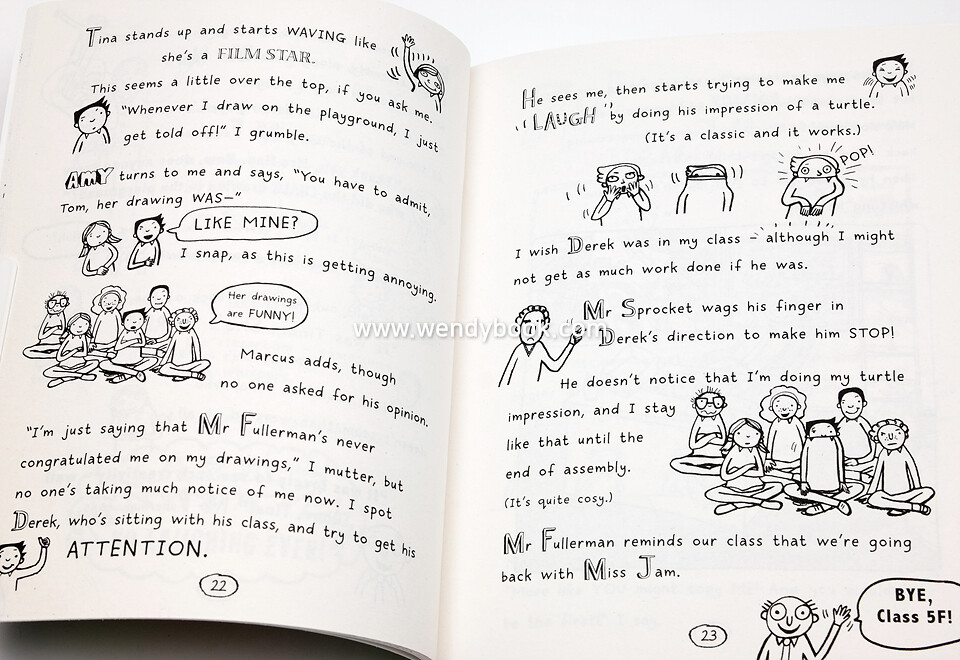 Tina stands up and starts WAVING like
she's a FILM STAR.
This seems a little over the top, if you ask me.
"Whenever I draw on the playground, I just
get told off!" I grumble.
AMY turns to me and says, "You have to admit,
Tom, her drawing WAS—"
LIKE MINE?
I snap, as this is getting annoying.
Her drawings
are FUNNY!
Marcus adds, though
no one asked for his opinion.
"I'm just saying that Mr Fullerman's never
congratulated me on my drawings," I mutter, but
no one's taking much notice of me now. I spot
Derek, who's sitting with his class, and try to get his
ATTENTION.
22
He sees me, then starts trying to make me
LAUGH by doing his impression of a turtle.
(It's a classic and it works.)
POP!
I wish Derek was in my class – although I might
not get as much work done if he was.
Mr Sprocket wags his finger in
Derek's direction to make him STOP!
He doesn't notice that I'm doing my turtle
impression, and I stay
like that until the
end of assembly.
(It's quite cosy.)
Mr Fullerman reminds our class that we're going
back with Miss Jam.
BYE,
Class 5F!
23
www.wendybook.com